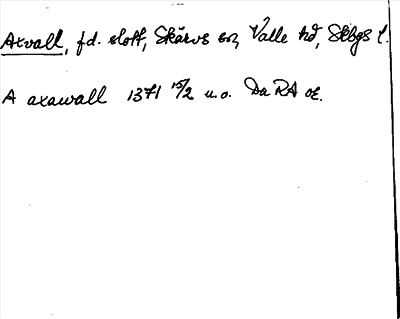 Axvall, f.d. slott, Skärvs sn, Valle hd, Skbgs l.
A axawall 1371 15/2 u.o. Da RA or.